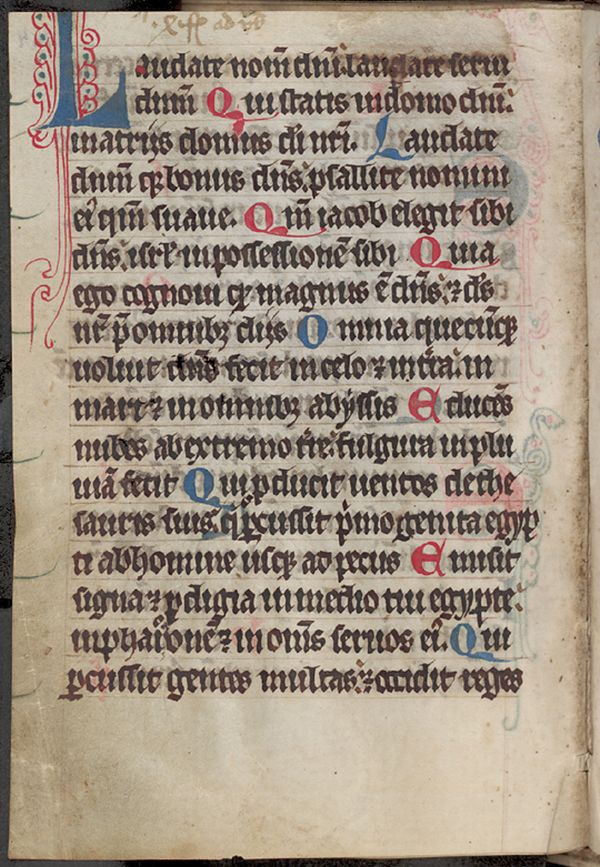 Laudate nom̄ dn̄i. laudate serui
dn̄m Qui statis in domo dn̄i.
in atrijs domus di nr̄i. Laudate
dn̄m qꝫ bonus dn̄s. psallite nomini
eiꝰ qm̄ suaue. Qm̄ iacob elegit sibi
dn̄s. isrl̄ in possessionē sibi Quia
ego cognoui qꝫ magnus ē dn̄s. ⁊ ds̄
nr̄ p̄ omnibꝫ dijs Omnia quecūqꝫ
uoluit dn̄s fecit in celo ⁊ in tr̄a. in
mari ⁊ in omnibꝫ abyssis Educēs
nubes ab extremo tr̄e. fulgura in plu
uiā fecit Qui ꝓducit uentos de the
sauris suis. q̄ ꝑcussit p̄mogenita egyp
ti ab homine usqꝫ ad pecus Emisit
signa ⁊ ꝓdigia in medio tui egypte.
in pharaonē ⁊ in om̄s seruos eiꝰ. Qui
ꝑcussit gentes multas. ⁊ occidit reges